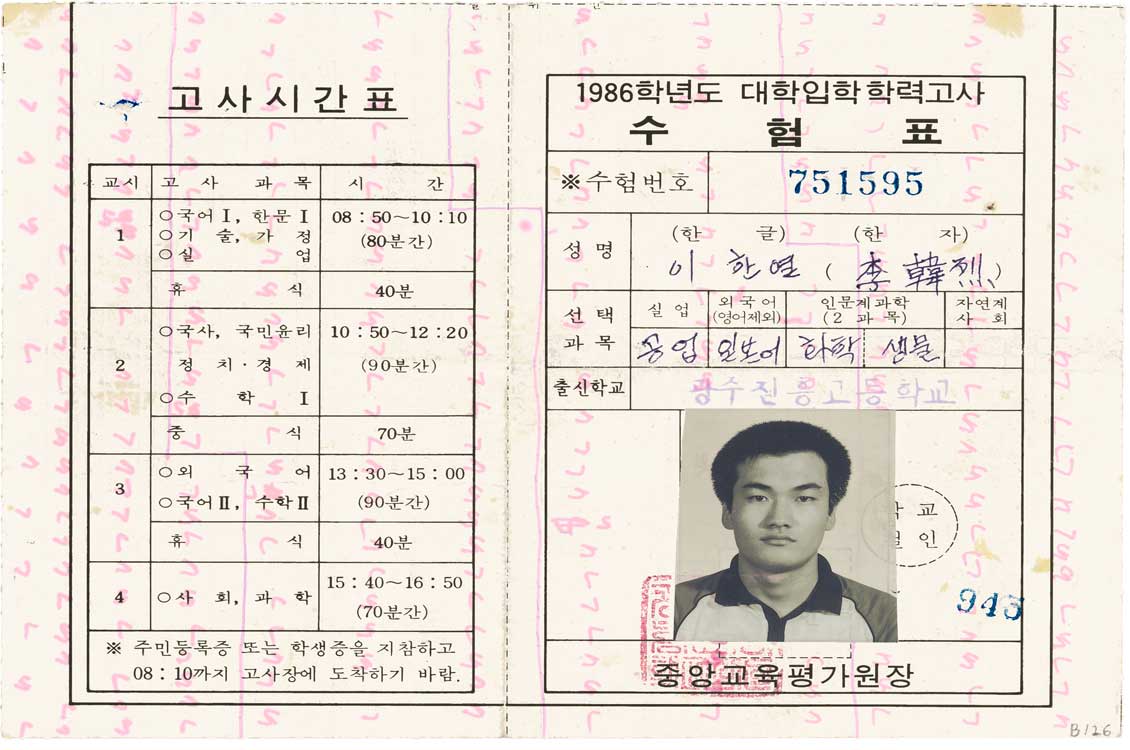 고사시간표
교시 고사과목 시간
1 ○국어Ⅰ, 한문Ⅰ 08:50~10:10
○기술, 가정 (80분간)
○실업
휴식 40분
2 ○국사, 국민윤리 10:50~12:20
정치·경제 (90분간)
○수학Ⅰ
중식 70분
3 ○외국어 13:30~15:00
○국어Ⅱ, 수학Ⅱ (90분간)
휴식 40분
4 ○사회, 과학 15:40~16:50
(70분간)
※ 주민등록증 또는 학생증을 지참하고
08:10까지 고사장에 도착하기 바람.
1986학년도 대학입학학력고사
수험표
※수험번호 751595
성명 (한글) (한자)
이한열 (李韓烈)
선택 실업 외국어 인문계과학 자연계
(영어제외) (2과목) 사회
과목 공업 일본어 화학 생물
출신학교 광주진흥고등학교
학교
철인
945
중앙교육평가원장
B126